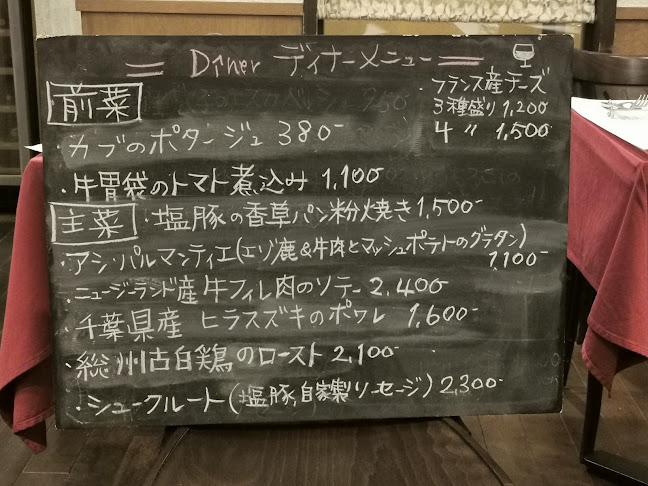 Dîner ディナーメニュー
・フランス産チーズ
3種盛り 1,200
4 〃 1,500
前菜
・カブのポタージュ 380-
・牛胃袋のトマト煮込み 1,100
主菜 ・塩豚の香草パン粉焼き 1,500-
・アシ・パルマンティエ(エゾ鹿&牛肉とマッシュポテトのグラタン)
1100-
・ニュージーランド産牛フィレ肉のソテー 2,400-
・千葉県産 ヒラスズキのポワレ 1,600-
・総州古白鶏のロースト 2,100-
・シュークルート(塩豚,自家製ソーセージ) 2,300-